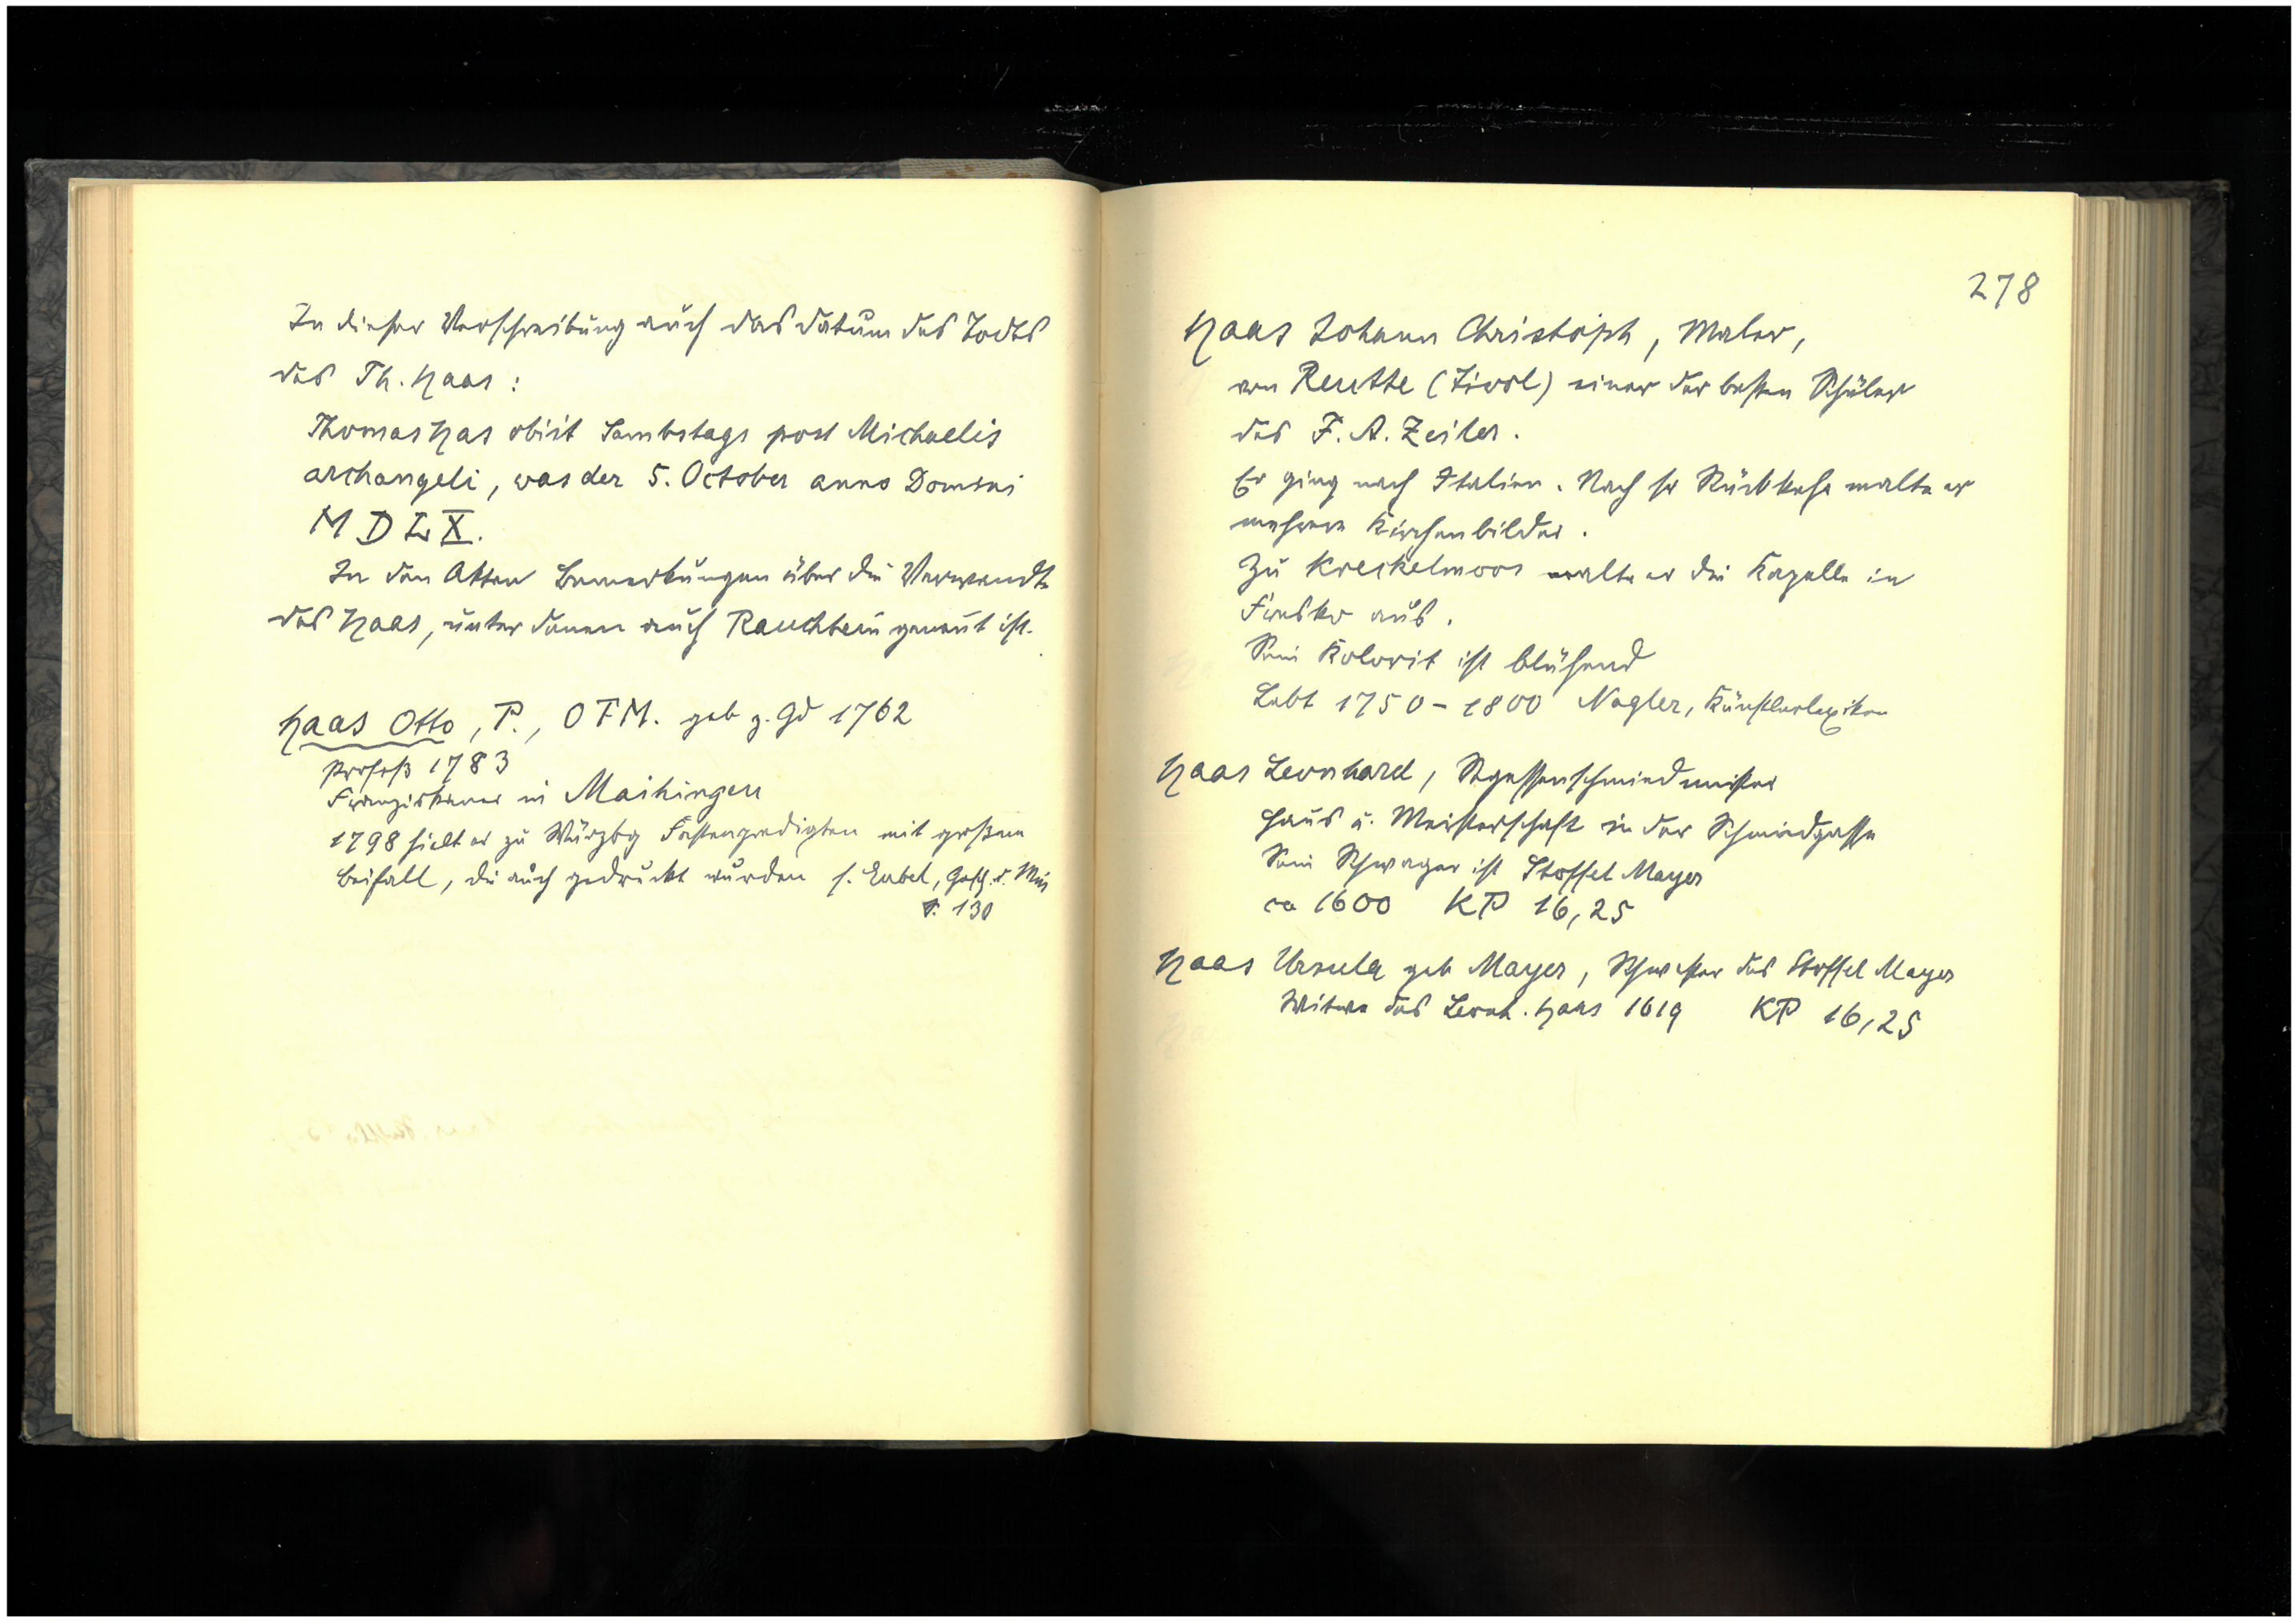 In dieser Verschreibung auch das Datum des Todes
des Th. Haas:
Thomas Has obiit Sambstags post Michaelis
archangeli, was der 5. October anno Domini
M D L X.
In den Akten Bemerkungen über die Verwandte
des Haas, unter denen auch Rauchbein genannt ist.
Haas Otto, P., OFM. geb z. Gd 1762
Profeß 1783
Franziskaner in Maihingen
1798 hielt er zu Würzbg Fastenpredigten mit großem
Beifall, die auch gedruckt wurden s. Eubel, Gesch. d. Min
S. 130
278
Haas Johann Christoph, Maler,
von Reutte (Tirol) einer der besten Schüler
des F. A. Zeiler.
Er ging nach Italien. Nach sr Rückkehr malte er
mehrere Kirchenbilder.
Zu Kreckelmoos malte er die Kapelle in
Fresko aus.
Sein Kolorit ist blühend
Lebt 1750-1800 Nagler, Künstlerlexikon
Haas Leonhard, Segessenschmiedmeister
Haus u. Meisterschaft in der Schmiedgasse
Sein Schwager ist Stoffel Mayer
ca 1600 KP 16,25
Haas Ursula geb Mayer, Schwester des Stoffel Mayer
Witwe des Leonh. Haas 1619 KP 16,25